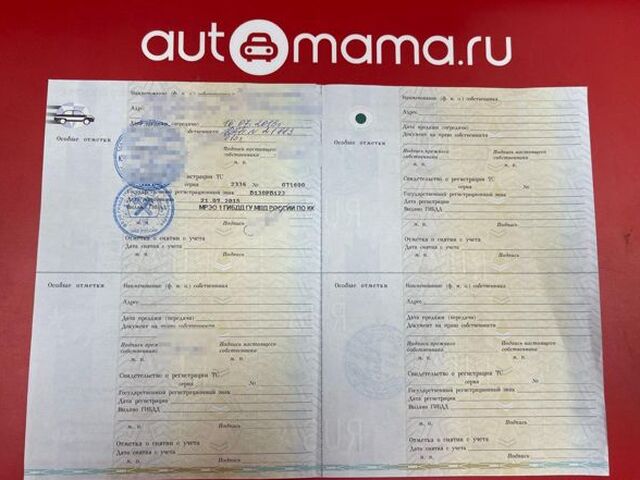 automama.ru
Особые отметки
Наименование (ф. и. о.) собственника
Адрес
Дата продажи (передачи)
собственности
Подпись настоящего
собственника
м. п.
регистрации ТС
серия 2336 №
Государственный регистрационный знак В130РВ123
21.07.2015
МРЭО 1 ГИБДД ГУ МВД РОССИИ ПО КК
м. п. Подпись
Отметка о снятии с учета
Дата снятия с учета
м. п. Подпись
Наименование (ф. и. о.) собственника
Адрес
Дата продажи (передачи)
Документ на право собственности
Подпись прежнего собственника
Подпись настоящего собственника
м. п. м. п.
Свидетельство о регистрации ТС
серия №
Государственный регистрационный знак
Дата регистрации
Выдано ГИБДД
м. п. Подпись
Отметка о снятии с учета
Дата снятия с учета
м. п. Подпись
Особые отметки
Наименование (ф. и. о.) собственника
Адрес
Дата продажи (передачи)
Документ на право собственности
Подпись прежнего собственника
Подпись настоящего собственника
м. п. м. п.
Свидетельство о регистрации ТС
серия №
Государственный регистрационный знак
Дата регистрации
Выдано ГИБДД
м. п. Подпись
Отметка о снятии с учета
Дата снятия с учета
м. п. Подпись
Наименование (ф. и. о.) собственника
Адрес
Дата продажи (передачи)
Документ на право собственности
Подпись прежнего собственника
Подпись настоящего собственника
м. п. м. п.
Свидетельство о регистрации ТС
серия №
Государственный регистрационный знак
Дата регистрации
Выдано ГИБДД
м. п. Подпись
Отметка о снятии с учета
Дата снятия с учета
м. п. Подпись